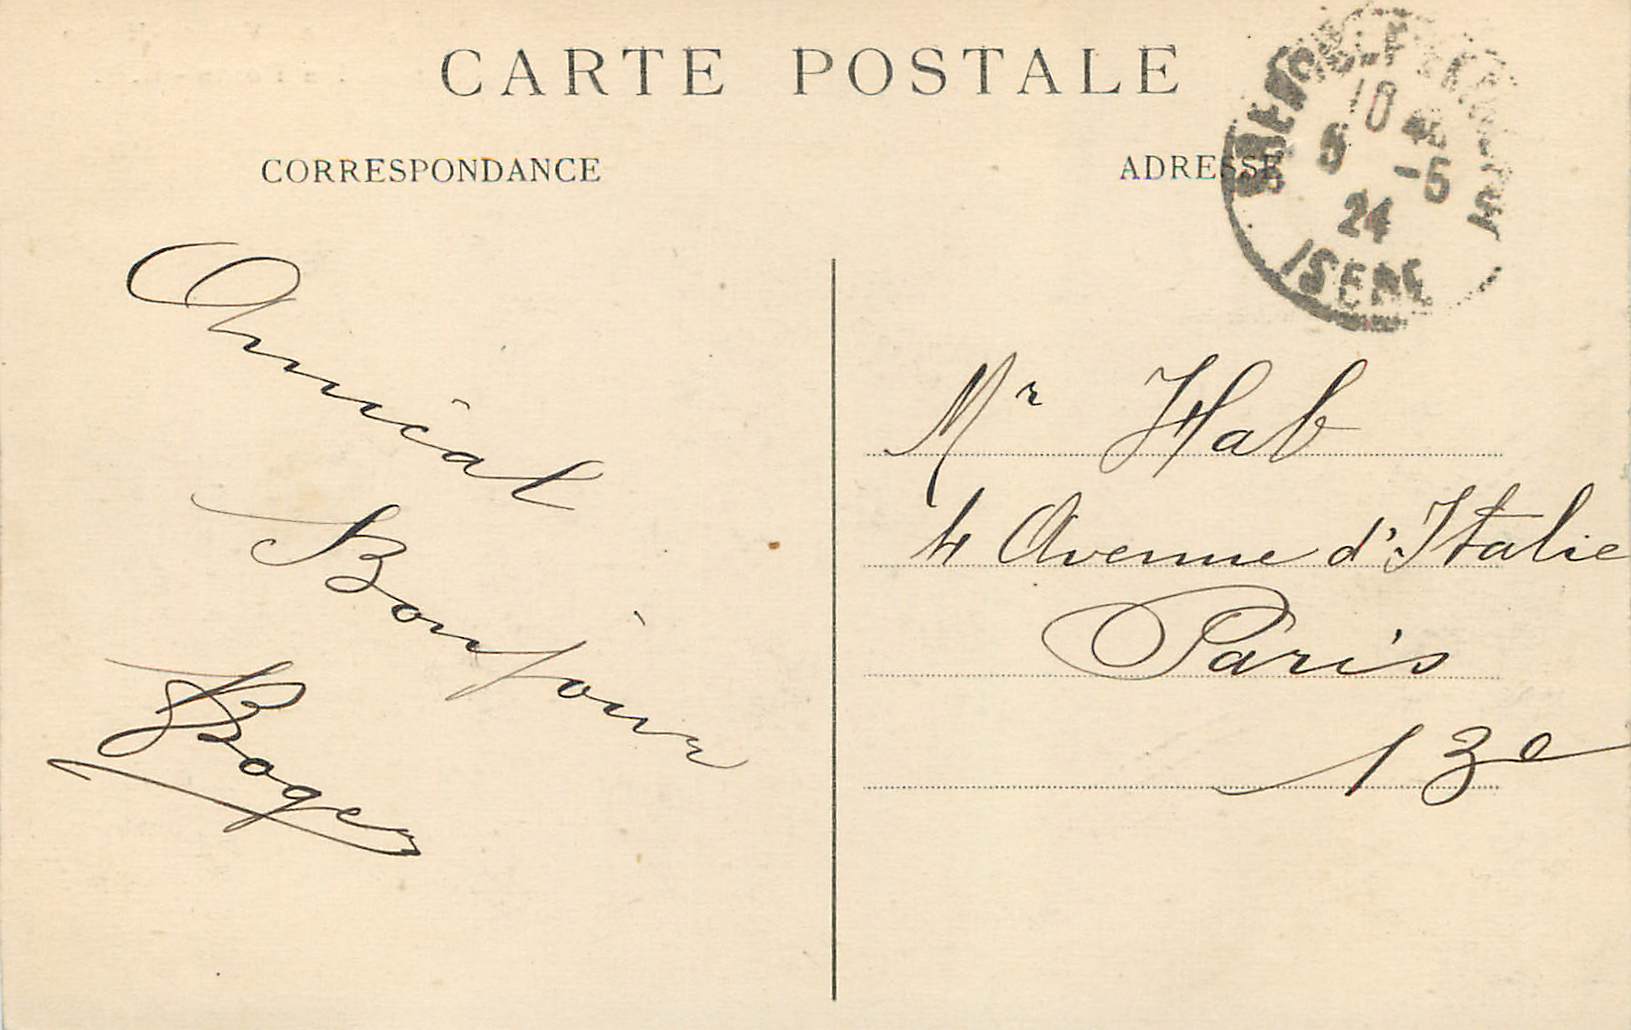 CARTE POSTALE
CORRESPONDANCE
ADRESSE
10 45
5 -5
24
ISERE
Amical
Bonjour
Roger
Mr Hab
4 Avenue d'Italie
Paris
13e